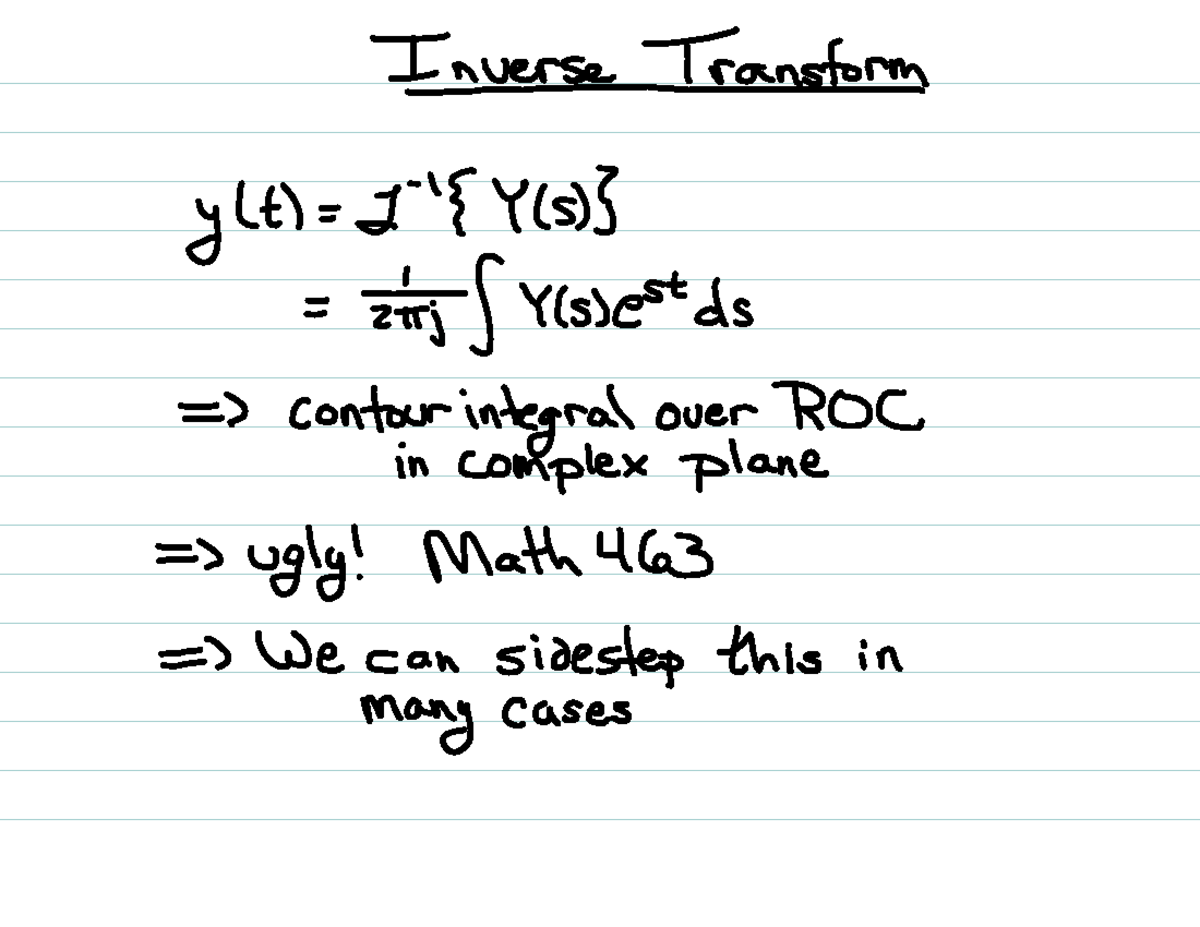 Inverse Transform
y(t) = ℒ⁻¹{ Y(s)}
= 1/2πj ∫ Y(s)e^st ds
=> contour integral over ROC
in complex plane
=> ugly! Math 463
=> We can sidestep this in
many cases